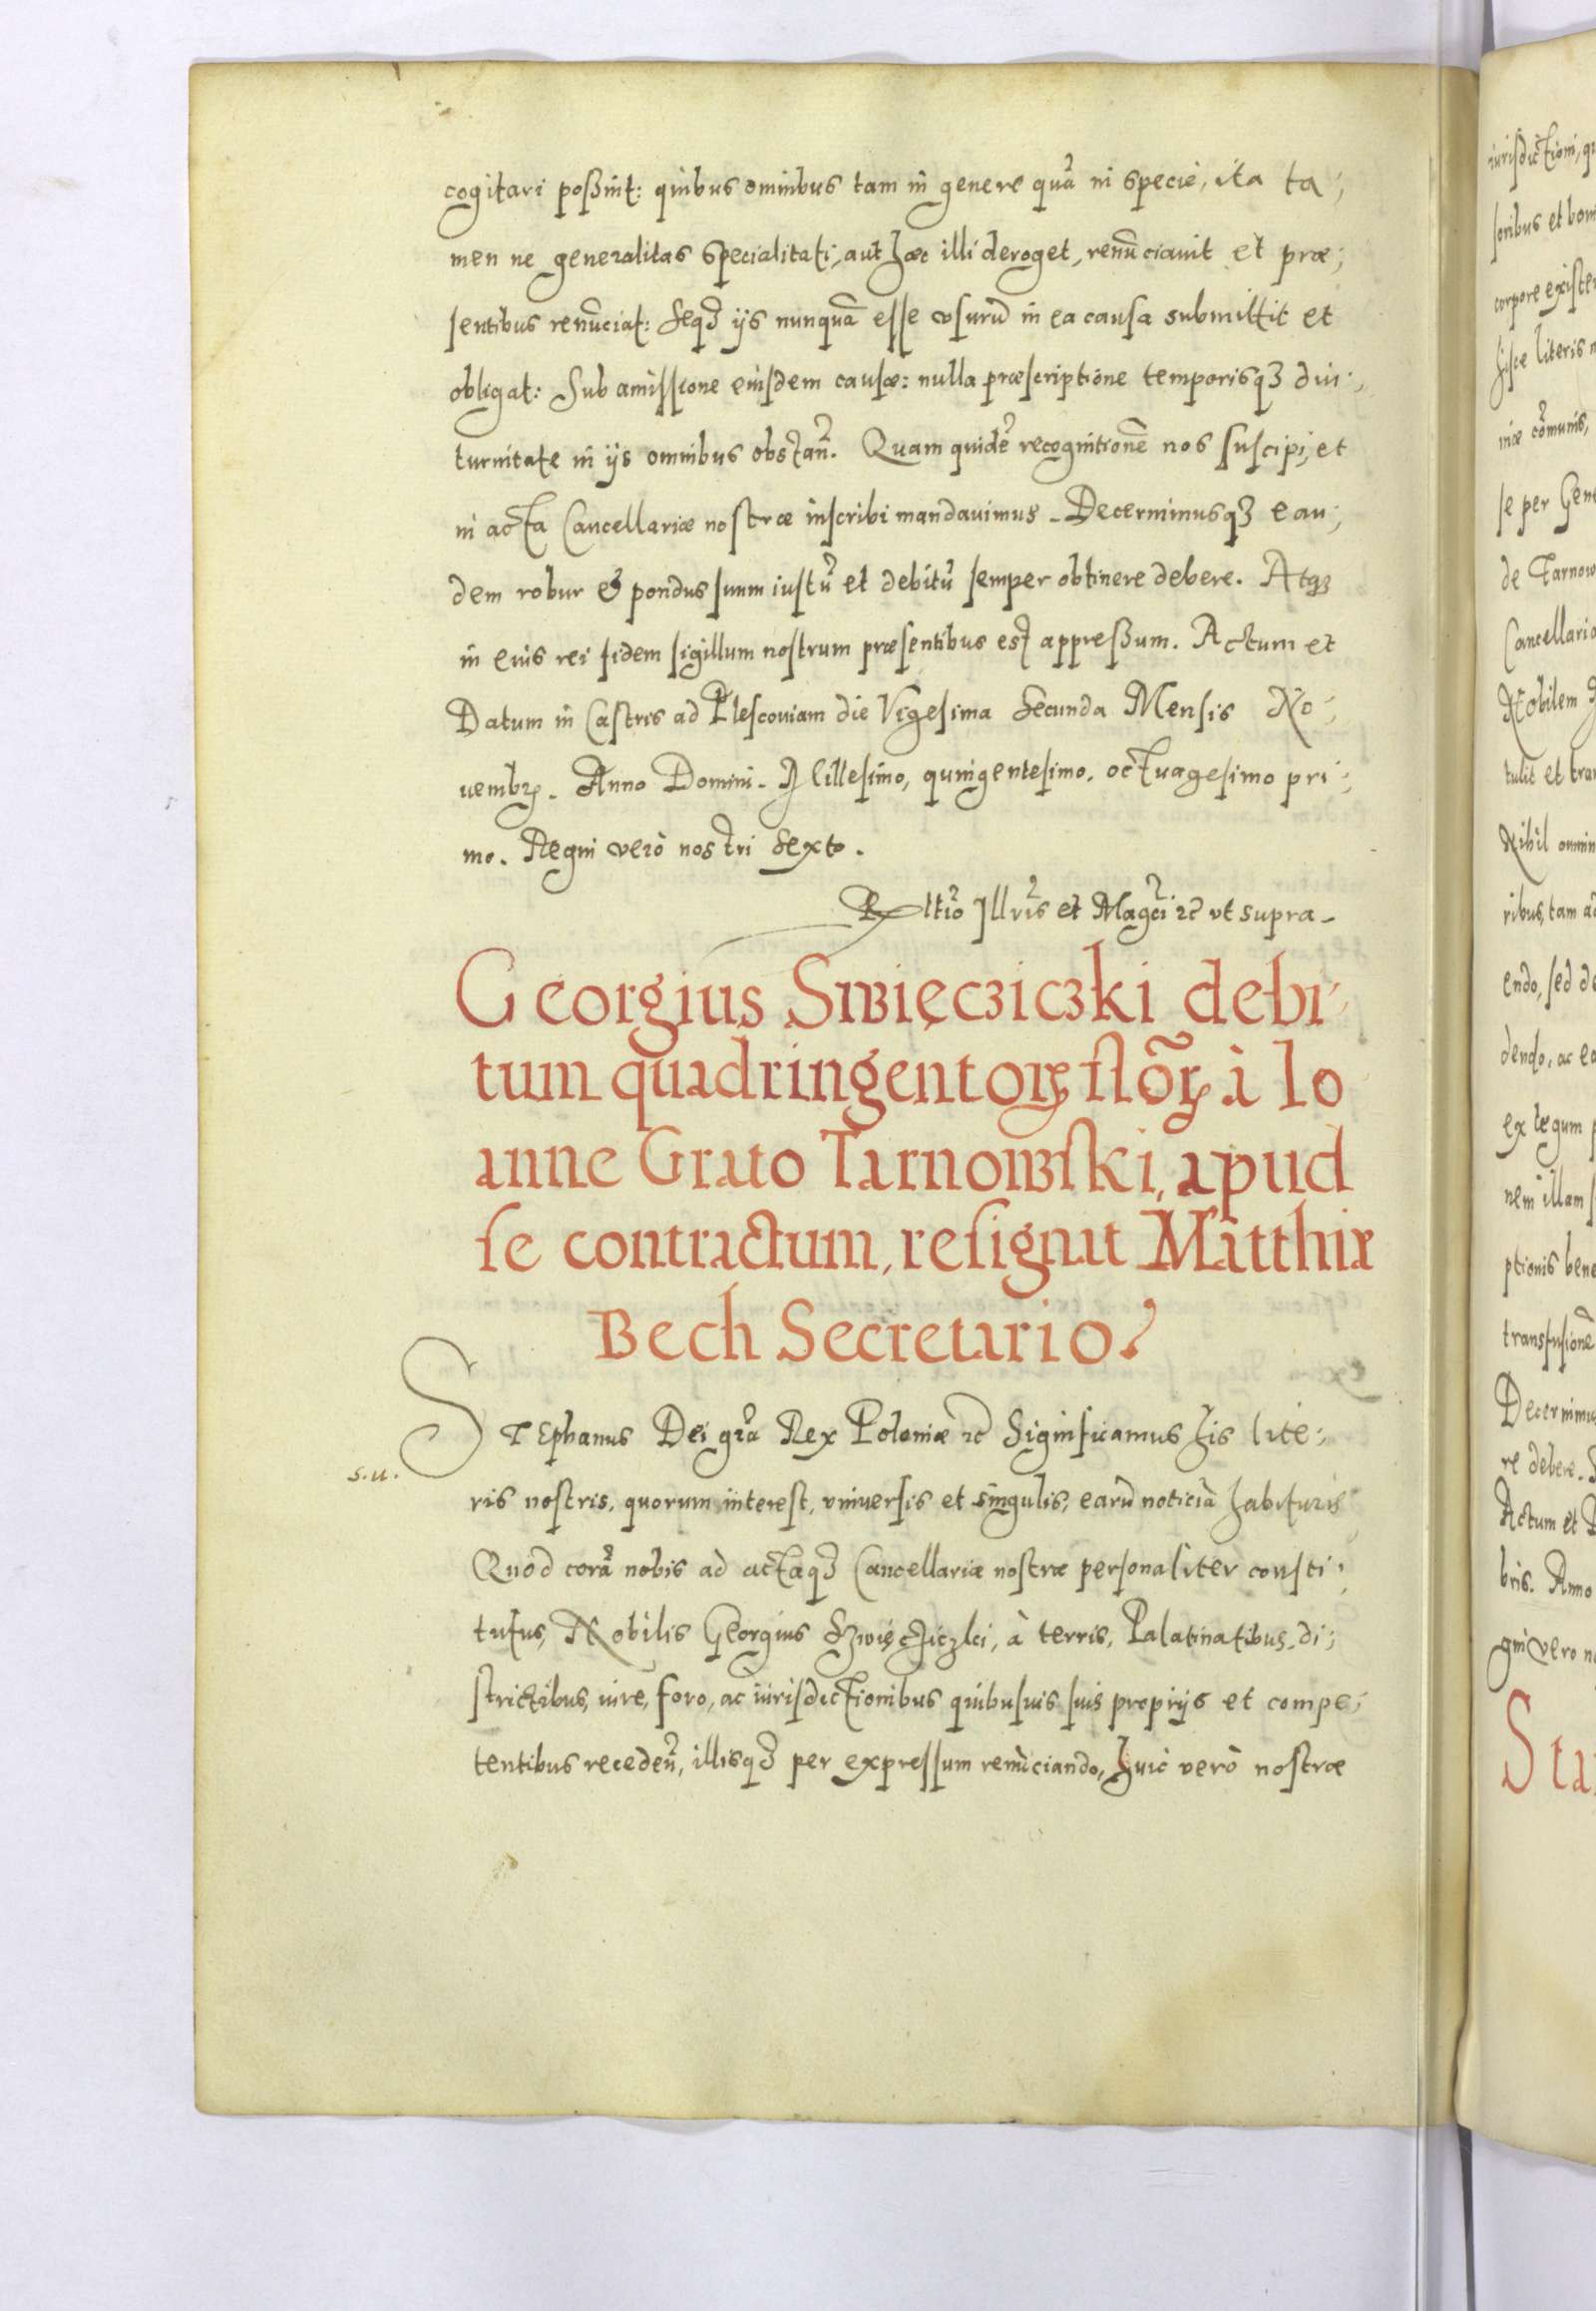 cogitari poßint: quibus omnibus tam in genere quã in specie, ita ta;
men ne generalitas specialitati, aut hæc illi deroget, renũciauit et præ;
sentibus renũciat: Seqꝫ ijs nunquã esse vsurũ in ea causa submittit et
obligat: Sub amissione eiusdem causæ: nulla præscriptione temporisqꝫ diu;
turnitate in ijs omnibus obstañ. Quam quidẽ recognitionẽ nos suscipi, et
in acta Cancellariæ nostræ inscribi mandauimus. Decernimusqꝫ ean;
dem robur & pondus suum iustũ et debitũ semper obtinere debere. Atqꝫ
in eius rei fidem sigillum nostrum præsentibus est appreßum. Actum et
Datum in Castris ad Plescouiam die Vigesima Secunda Mensis No;
uembꝝ. Anno Domini. Millesimo, quingentesimo, octuagesimo pri;
mo. Regni verò nostri Sexto.
Rltĩo Illrĩs et Magcĩ ꝛc̃ vt supra.
Georgius Swięcziczki debi
tum quadringentoꝝ flõꝝ à Io
anne Grato Tarnowski, apud
se contractum, resignat Matthiæ
Bech Secretario.
STEphanus Dei grã Rex Poloniæ ꝛc̃ Significamus his lite;
s.u.
ris nostris, quorum interest, vniuersis et singulis, earũ noticiã habituris
Quod corã nobis ad actaqꝫ Cancellariæ nostræ personaliter consti;
tutus, Nobilis Georgius Szwięcziczki, à terris, Palatinatibus, di;
strictibus, iure, foro, ac iurisdictionibus quibusuis suis proprijs et compe;
tentibus recedeñ, illisqꝫ per expressum renũciando, huic verò nostræ
iurisdictioni,
soribus et
corpore
literis
se per
de
Nobilem
tulit et
Nihil
ribus, tam
endo, sed
dendo, ac
ex legum
nem illam
ptionis
transfusionẽ
re debere.
Actum et
bris. Anno
gni vero